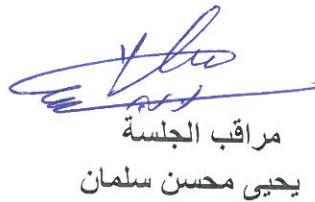 مراقب الجلسة
يحيى محسن سلمان